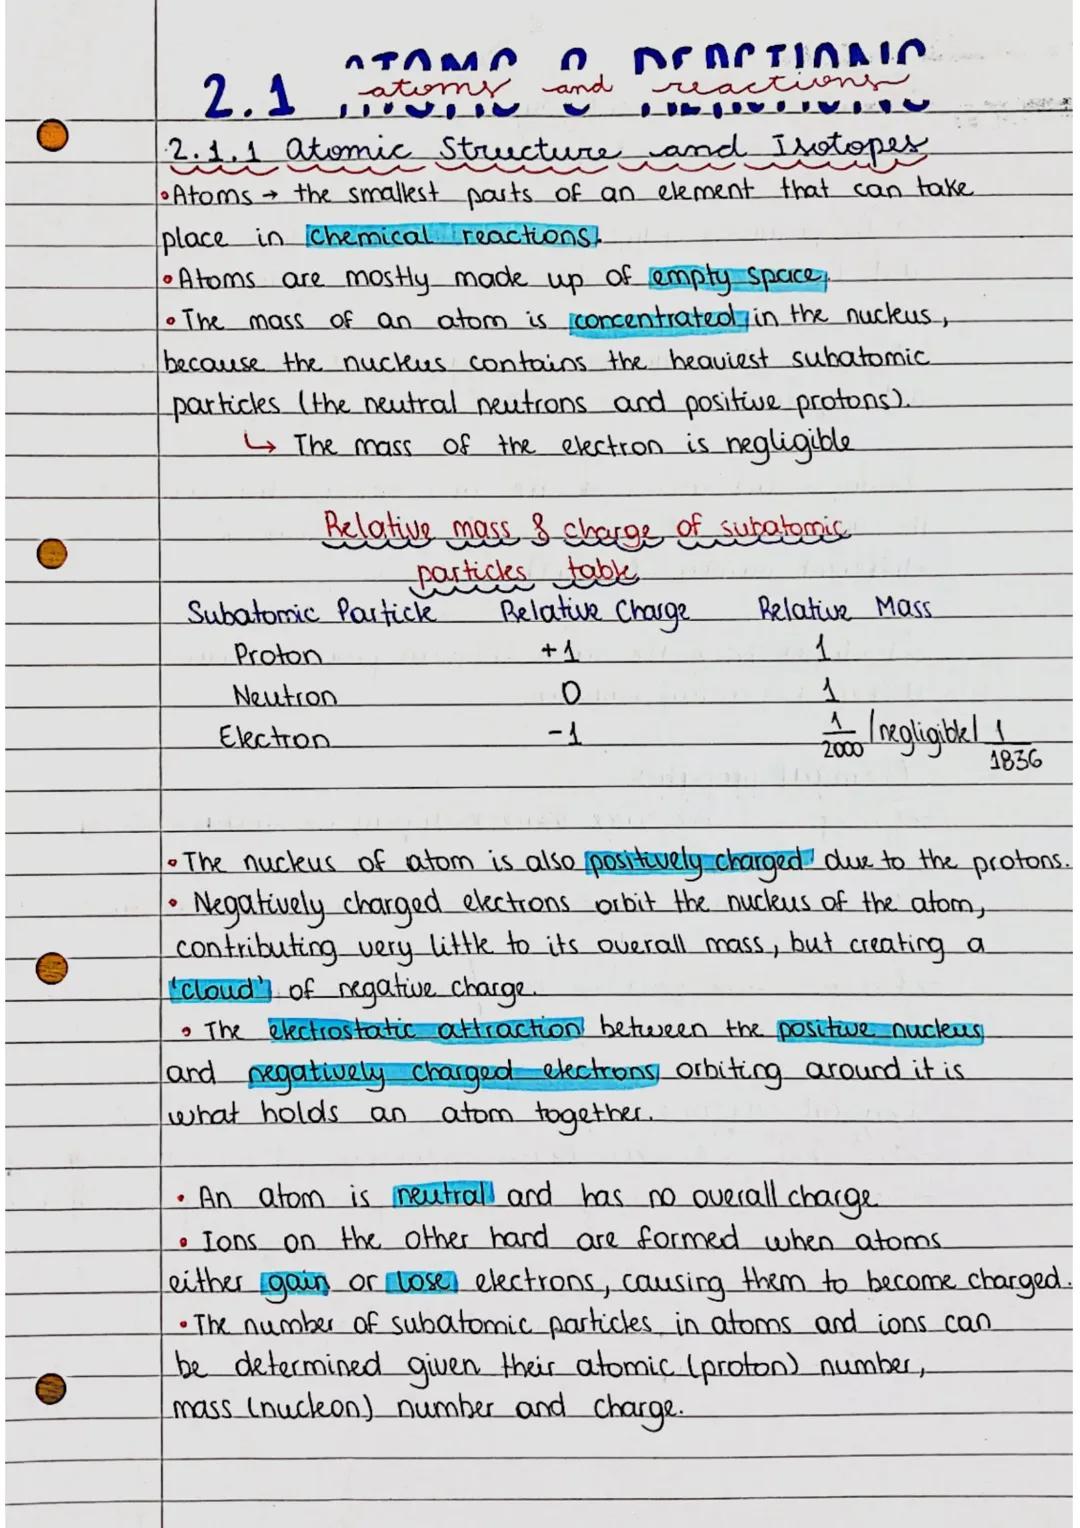 2.1 ATOMS & REACTIONS
atoms and reactions
2.1.1 Atomic Structure and Isotopes
•Atoms → the smallest parts of an element that can take
place in chemical reactions.
•Atoms are mostly made up of empty space.
•The mass of an atom is concentrated in the nucleus,
because the nucleus contains the heaviest subatomic
particles (the neutral neutrons and positive protons).
↳ The mass of the electron is negligible
Relative mass & charge of subatomic
particles table
Subatomic Particle Relative Charge Relative Mass
Proton +1 1
Neutron 0 1
Electron -1 1/2000 /negligible/ 1/1836
•The nucleus of atom is also positively charged due to the protons.
• Negatively charged electrons orbit the nucleus of the atom,
contributing very little to its overall mass, but creating a
'cloud' of negative charge.
• The electrostatic attraction between the positive nucleus
and negatively charged electrons orbiting around it is
what holds an atom together.
• An atom is neutral and has no overall charge
• Ions on the other hand are formed when atoms
either gain or lose electrons, causing them to become charged.
•The number of subatomic particles in atoms and ions can
be determined given their atomic (proton) number,
mass (nucleon) number and charge.